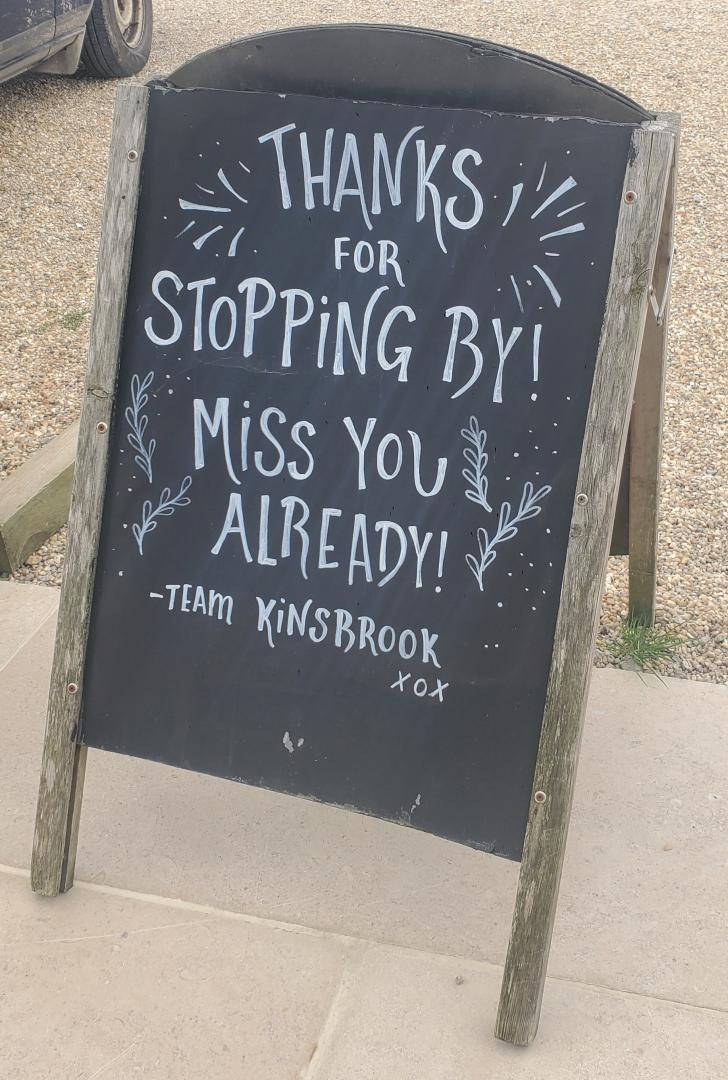 THANKS
FOR
STOPPING BY!
MISS YOU
ALREADY!
-TEAM KINSBROOK
XOX